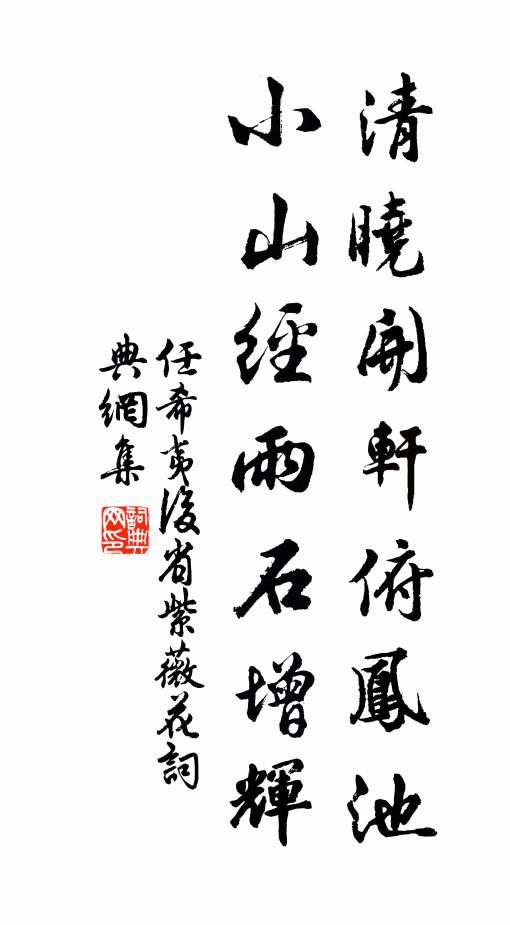 清曉開軒俯鳳池
小山經雨石增輝
任希夷後省紫薇花詞
典網集
詞典網印